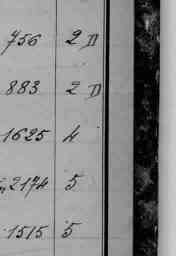 756 2 D
883 2 D
1625 4
2174 5
1515 5